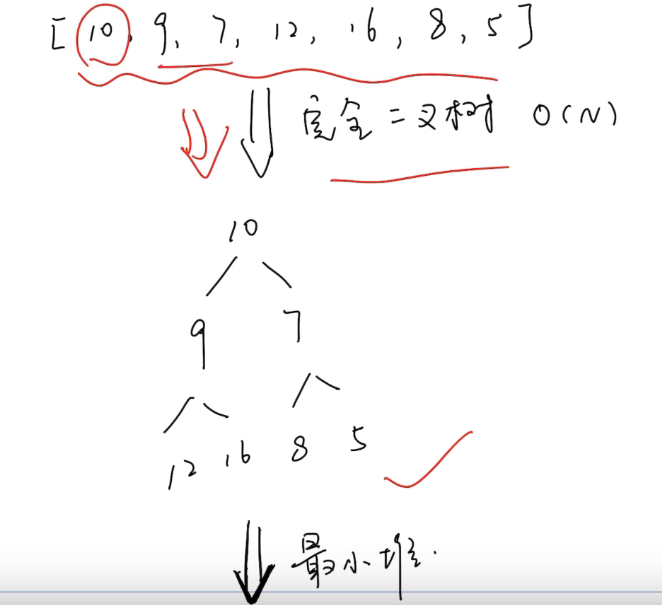 [10, 9, 7, 12, 16, 8, 5]
完全二叉树 O(N)
10
9 7
12 16 8 5
最小堆.